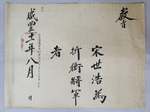 敎旨
宋世浩為
折衝將軍
者
咸豊十一年八月 日